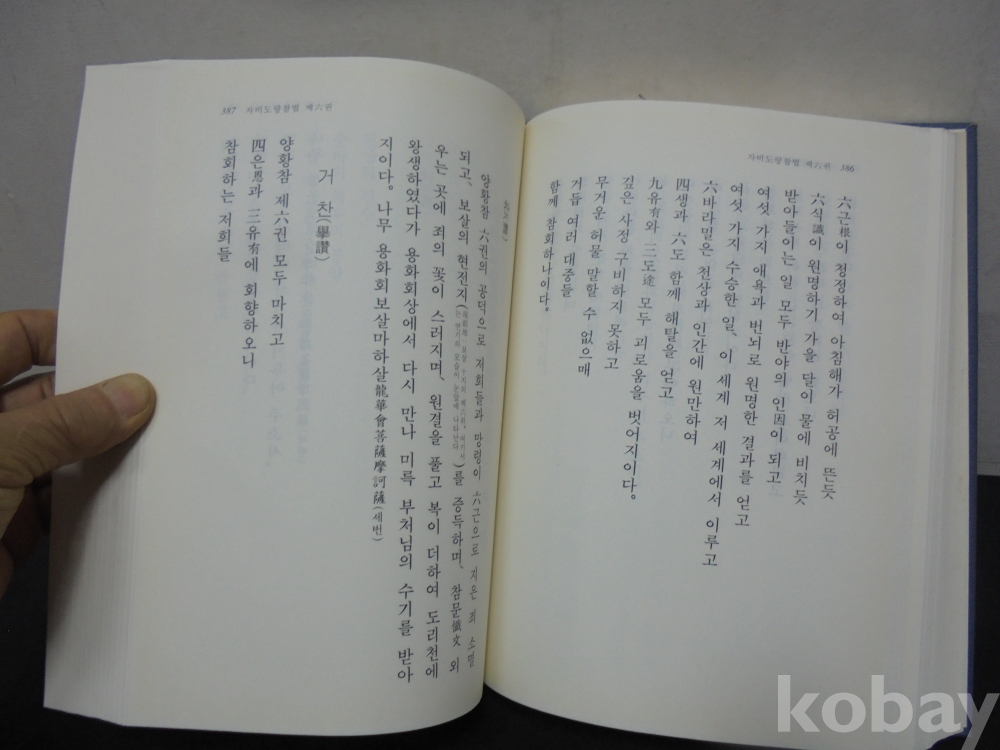 자비도량참법 제六권 386
六근根이 청정하여 아침해가 허공에 뜬듯
六식識이 원명하기 가을 달이 물에 비치듯
받아들이는 일 모두 반야의 인因이 되고
여섯 가지 애욕과 번뇌로 원명한 결과를 얻고
여섯 가지 수승한 일, 이 세계 저 세계에서 이루고
六바라밀은 천상과 인간에 원만하여
四생과 六도 함께 해탈을 얻고
九유有와 三도途 모두 괴로움을 벗어지이다.
깊은 사정 구비하지 못하고
무거운 허물 말할 수 없으매
거듭 여러 대중들
함께 참회하나이다.
387 자비도량참법 제六권
양황참 六권의 공덕으로 저희들과 망령이 六근으로 지은 죄 소멸
되고, 보살의 현전지
를 증득하며, 참문懺文 외
우는 곳에 죄의 꽃이 스러지며, 원결을 풀고 복이 더하여 도리천에
왕생하였다가 용화회상에서 다시 만나 미륵 부처님의 수기를 받아
지이다. 나무 용화회보살마하살龍華會菩薩摩訶薩(세번)
거 찬(擧讚)
양황참 제六권 모두 마치고
四은恩과 三유有에 회향하오니
참회하는 저희들
kobay